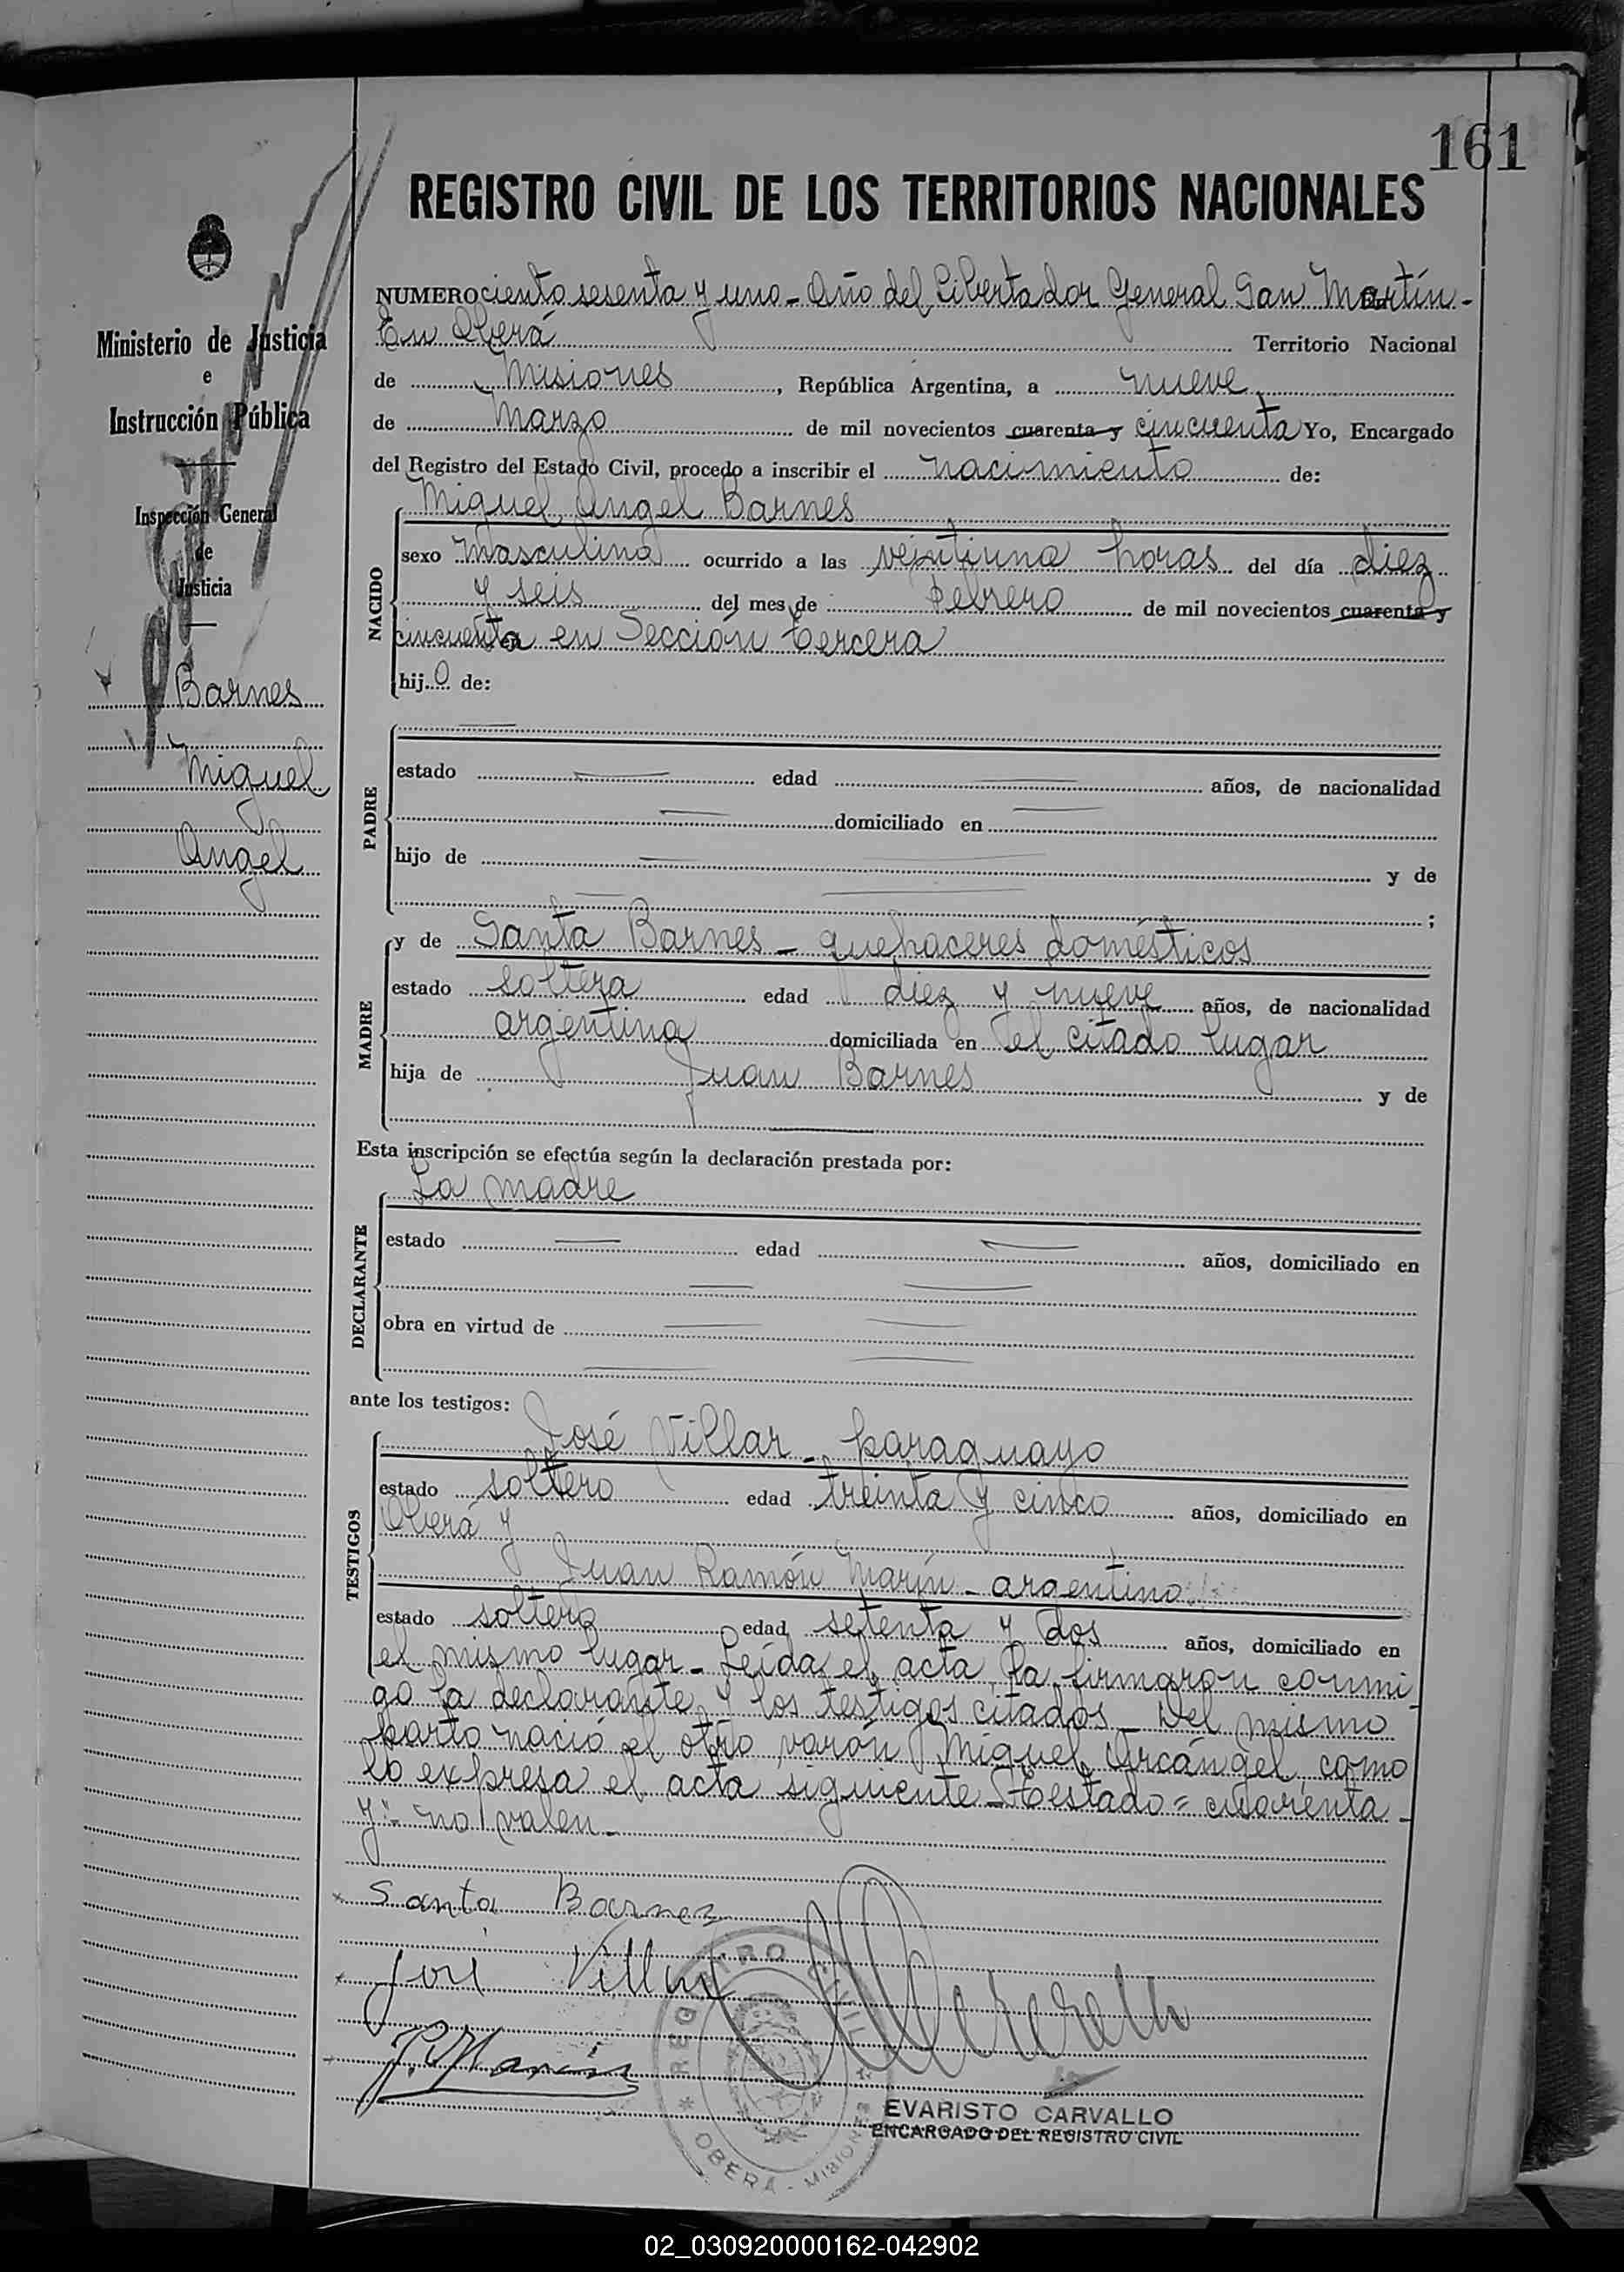 161
REGISTRO CIVIL DE LOS TERRITORIOS NACIONALES
NUMERO ciento sesenta y uno - Año del Libertador General San Martín -
En Oberá Territorio Nacional
de Misiones, República Argentina, a nueve
de Marzo de mil novecientos cuarenta y cincuenta Yo, Encargado
del Registro del Estado Civil, procedo a inscribir el nacimiento de:
Miguel Angel Barnes
NACIDO
sexo masculino ocurrido a las veintiuna horas del día diez
y seis del mes de Febrero de mil novecientos cuarenta y
cincuenta en Sección tercera
hijo de:
PADRE
estado edad años, de nacionalidad
domiciliado en
hijo de y de
;
MADRE
y de Santa Barnes - quehaceres domésticos
estado soltera edad diez y nueve años, de nacionalidad
argentina domiciliada en el citado lugar
hija de Juan Barnes y de
Esta inscripción se efectúa según la declaración prestada por:
La madre
DECLARANTE
estado edad años, domiciliado en
obra en virtud de
ante los testigos:
TESTIGOS
José Villar - paraguayo
estado soltero edad treinta y cinco años, domiciliado en
Oberá y
Juan Ramón Marín - argentino
estado soltero edad setenta y dos años, domiciliado en
el mismo lugar - Leída el acta, la firmaron conmi-
go la declarante y los testigos citados - Del mismo
parto nació el otro varón Miguel Arcángel, como
lo expresa el acta siguiente - Testado = cuarenta -
y:- no valen -
Santa Barnes
José Villar
J.R. Marín
REGISTRO CIVIL
OBERÁ - MISIONES
EVARISTO CARVALLO
ENCARGADO DEL REGISTRO CIVIL
Ministerio de Justicia
e
Instrucción Pública
Inspección General
de
Justicia
Barnes
Miguel
Angel
02_030920000162-042902